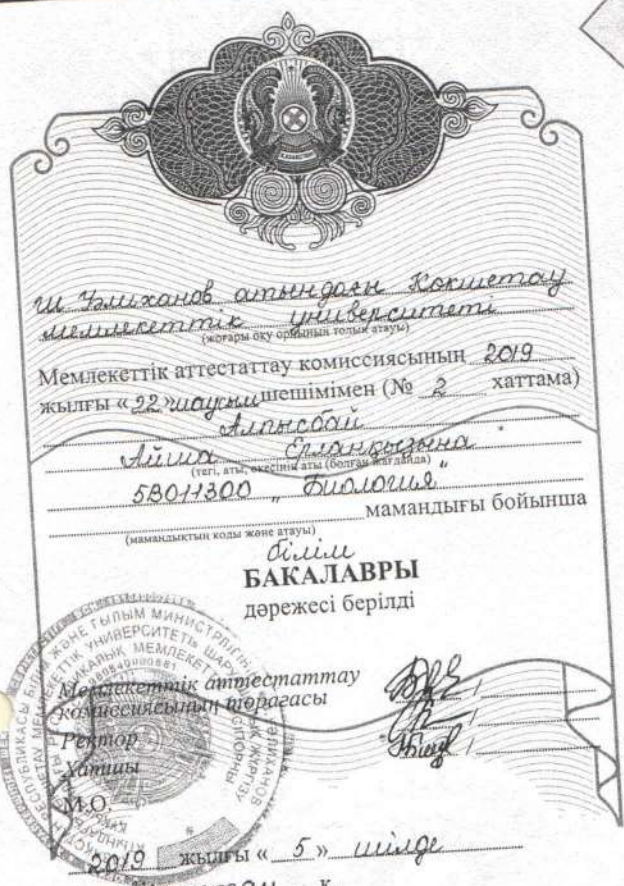 ҚАЗАҚСТАН
Ш Уәлиханов атындағы Көкшетау
мемлекеттік университеті
(жоғары оқу орнының толық атауы)
Мемлекеттік аттестаттау комиссиясының 2019
жылғы «22» маусым шешімімен (№ 2 хаттама)
Алпысбай
Айша Ерланқызына
(тегі, аты, әкесінің аты (болған жағдайда)
5В011300 „Биология"
мамандығы бойынша
(мамандықтың коды және атауы)
білім
БАКАЛАВРЫ
дәрежесі берілді
Мемлекеттік аттестаттау
комиссиясының төрағасы
Ректор
Хатшы
М.О.
2019 жылғы « 5 » шілде